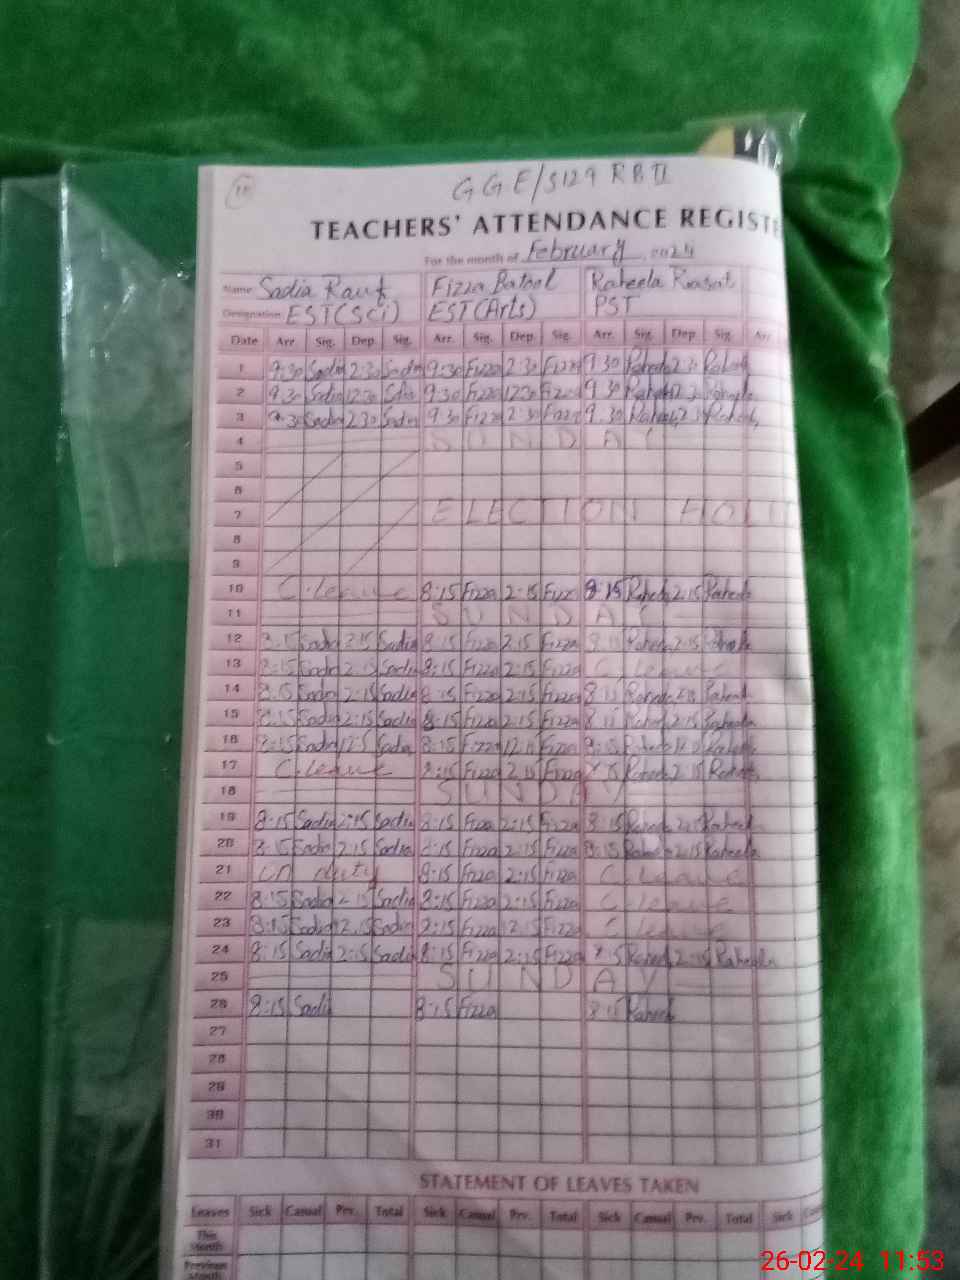 10
G G E/S129 R B II
TEACHERS' ATTENDANCE REGISTE
For the month of February 2024
Name Sadia Rauf Fizza Batool Raheela
Designation EST(Sci) EST(Arts) PST
Date Arr. Sig. Dep. Sig. Arr. Sig. Dep. Sig. Arr. Sig. Dep. Sig. Arr
1 9:30 Sadia 2:30 Sadia 9:30 Fizza 2:30 Fizza 9:30 Raheela 2:30 Raheela
2 9:30 Sadia 12:30 Sadia 9:30 Fizza 12:30 Fizza 9:30 Raheela 12:30 Raheela
3 9:30 Sadia 2:30 Sadia 9:30 Fizza 2:30 Fizza 9:30 Raheela 2:30 Raheela
4 SUNDAY
5
6
7 ELECTION HOLI
8
9
10 C.leave 8:15 Fizza 2:15 Fizza 8:15 Raheela 2:15 Raheela
11 SUNDAY
12 8:15 Sadia 2:15 Sadia 8:15 Fizza 2:15 Fizza 8:15 Raheela 2:15 Raheela
13 8:15 Sadia 2:15 Sadia 8:15 Fizza 2:15 Fizza C.leave
14 8:15 Sadia 2:15 Sadia 8:15 Fizza 2:15 Fizza 8:15 Raheela 2:15 Raheela
15 8:15 Sadia 2:15 Sadia 8:15 Fizza 2:15 Fizza 8:15 Raheela 2:15 Raheela
16 8:15 Sadia 12:15 Sadia 8:15 Fizza 12:15 Fizza 8:15 Raheela Raheela
17 C.leave 8:15 Fizza 2:15 Fizza 8:15 Raheela 2:15 Raheela
18 SUNDAY
19 8:15 Sadia 2:15 Sadia 8:15 Fizza 2:15 Fizza 8:15 Raheela 2:15 Raheela
20 8:15 Sadia 2:15 Sadia 8:15 Fizza 2:15 Fizza 8:15 Raheela 2:15 Raheela
21 on duty 8:15 Fizza 2:15 Fizza C.leave
22 8:15 Sadia 2:15 Sadia 8:15 Fizza 2:15 Fizza C.leave
23 8:15 Sadia 12:15 Sadia 8:15 Fizza 12:15 Fizza C.leave
24 8:15 Sadia 2:15 Sadia 8:15 Fizza 2:15 Fizza 8:15 Raheela 2:15 Raheela
25 SUNDAY
26 8:15 Sadia 8:15 Fizza 8:15 Raheela
27
28
29
30
31
STATEMENT OF LEAVES TAKEN
Leaves Sick Casual Prv. Total Sick Casual Prv. Total Sick Casual Prv. Total Sick Cas
This Month
Previous Month
26-02-24 11:53